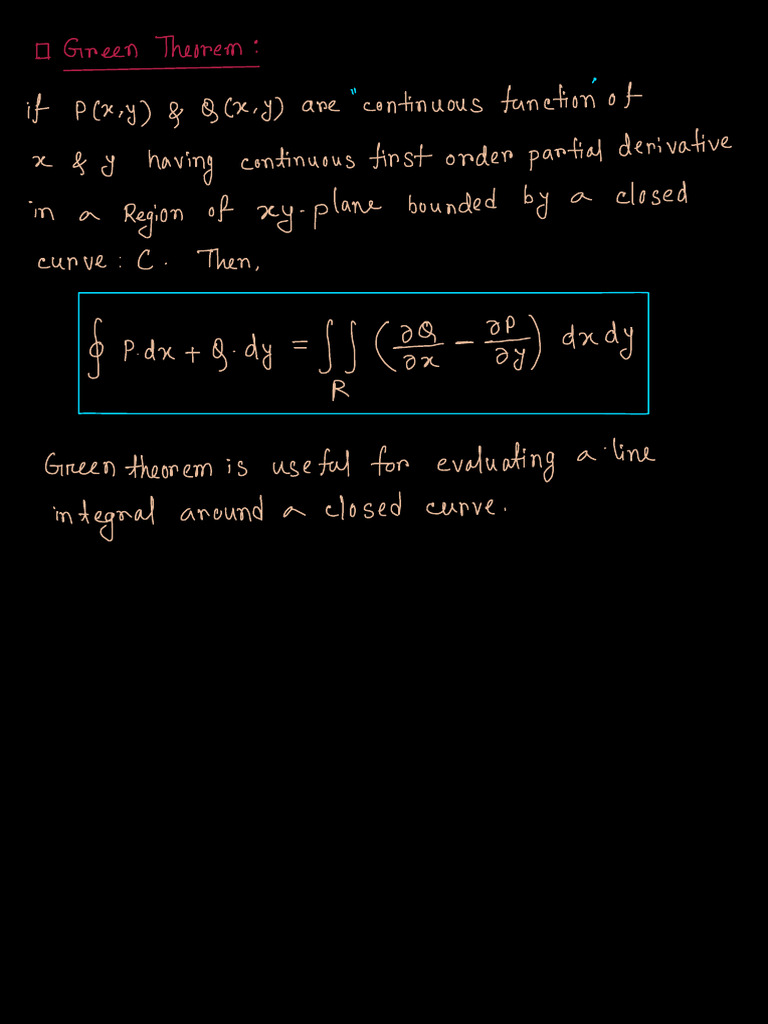 □ Green Theorem:
if P(x,y) & Q(x,y) are "continuous function" of
x & y having continuous first order partial derivative
in a Region of xy-plane bounded by a closed
curve: C. Then,
∮ P.dx + Q.dy = ∬_R (∂Q/∂x − ∂P/∂y) dx dy
Green theorem is useful for evaluating a line
integral around a closed curve.